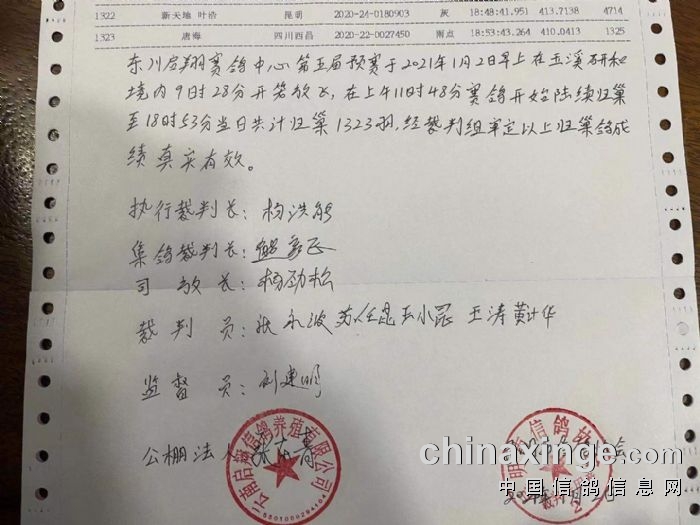 1322 新天地 叶浩 昆明 2020-24-0180903 灰 18:48:41.951 413.7138 4714
1323 唐海 四川西昌 2020-22-0027450 雨点 18:53:43.264 410.0413 1325
东川启翔赛鸽中心第五届预赛于2021年1月2日早上在玉溪研和
境内9时28分开笼放飞，在上午11时48分赛鸽开始陆续归巢
至18时53分当日共计归巢1323羽，经裁判组审定以上归巢鸽成
绩真实有效。
执行裁判长：杨洪能
集鸽裁判长：熊家飞
司放长：杨劲松
裁判员：张永波 苏任昆 王小昆 王涛 黄计华
监督员：刘建明
公棚法人：张
云南启翔信鸽养殖有限公司
5301000294104
信鸽协会
chinaxinge.com
中国信鸽信息网